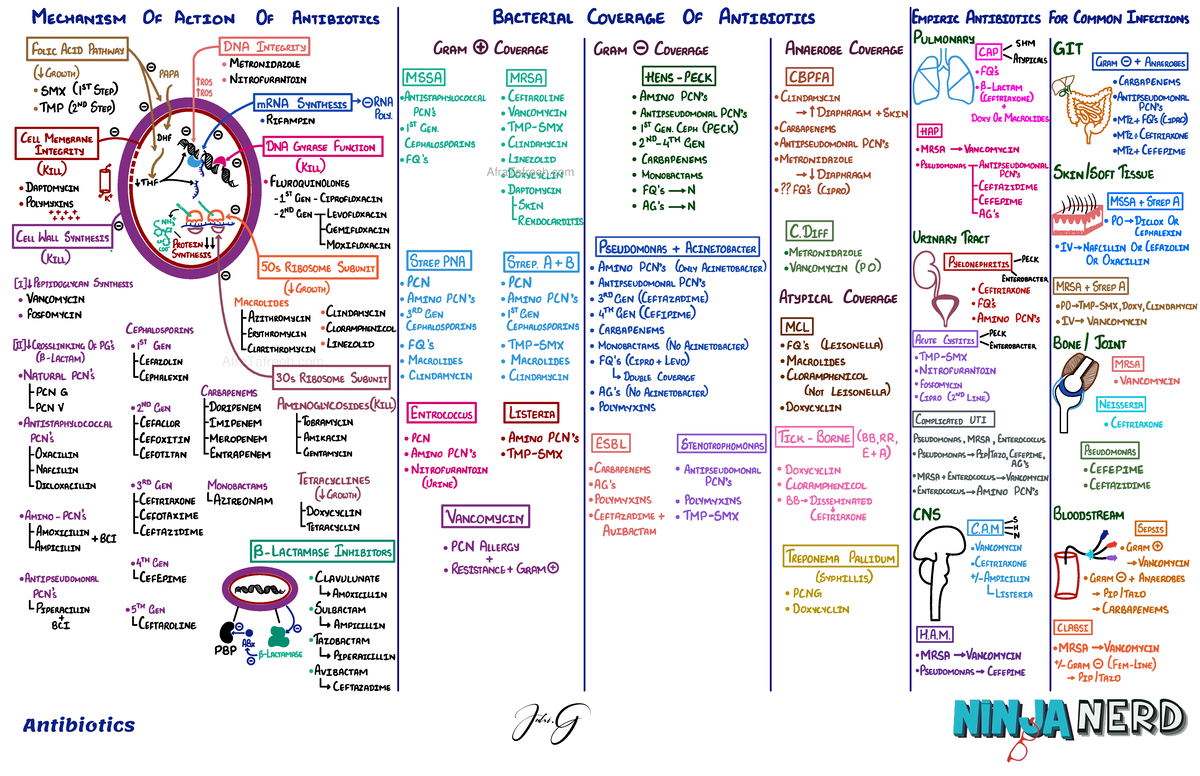 Mechanism Of Action Of Antibiotics
Folic Acid Pathway
(↓Growth)
• SMX (1st Step)
• TMP (2nd Step)
PAPA
DHF
↓THF
DNA Integrity
• Metronidazole
• Nitrofurantoin
↑ROS
↑ROS
mRNA Synthesis → ⊖ RNA Poly.
• Rifampin
Cell Membrane Integrity
(Kill)
• Daptomycin
• Polymyxins
++++
+++
K+
DNA Gyrase Function
(Kill)
• Fluroquinolones
-1st Gen - Ciprofloxacin
-2nd Gen
Levofloxacin
Gemifloxacin
Moxifloxacin
NH3
COO
Protein Synthesis ↓↓
Cell Wall Synthesis
(Kill)
50s Ribosome Subunit
(↓Growth)
Macrolides
Azithromycin
Erythromycin
Clarithromycin
• Clindamycin
• Cloramphenicol
• Linezolid
[I]↓Peptidoglycan Synthesis
• Vancomycin
• Fosfomycin
[II]↓Crosslinking Of PG's
(β-Lactam)
• Natural PCN's
PCN G
PCN V
• Antistaphylococcal PCN's
Oxacillin
Nafcillin
Dicloxacillin
• Amino-PCN's
Amoxicillin
Ampicillin
+ BCI
• Antipseudomonal PCN's
Piperacillin
+
BCI
Cephalosporins
• 1st Gen
Cefazolin
Cephalexin
• 2nd Gen
Cefaclor
Cefoxitin
Cefotitan
• 3rd Gen
Ceftriaxone
Cefotaxime
Ceftazidime
• 4th Gen
Cefepime
• 5th Gen
Ceftaroline
Carbapenems
Doripenem
Imipenem
Meropenem
Entrapenem
Monobactams
Aztreonam
30s Ribosome Subunit
Aminoglycosides(Kill)
Tobramycin
Amikacin
Gentamycin
Tetracyclins
(↓Growth)
Doxycyclin
Tetracyclin
β-Lactamase Inhibitors
PBP
ABx
β-Lactamase
• Clavulunate
→ Amoxicillin
• Sulbactam
→ Ampicillin
• Tazobactam
→ Piperacillin
• Avibactam
→ Ceftazadime
Bacterial Coverage Of Antibiotics
Gram ⊕ Coverage
MSSA
• Antistaphylococcal PCN's
• 1st Gen. Cephalosporins
• FQ's
MRSA
• Ceftaroline
• Vancomycin
• TMP-SMX
• Clindamycin
• Linezolid
• Doxycyclin
• Daptomycin
Skin
R endocarditis
Strep. PNA
• PCN
• Amino PCN's
• 3rd Gen Cephalosporins
• FQ's
• Macrolides
• Clindamycin
Strep. A + B
• PCN
• Amino PCN's
• 1st Gen Cephalosporins
• TMP-SMX
• Macrolides
• Clindamycin
Entrococcus
• PCN
• Amino PCN's
• Nitrofurantoin
(Urine)
Listeria
• Amino PCN's
• TMP-SMX
Vancomycin
• PCN Allergy
+
• Resistance + Gram ⊕
Gram ⊖ Coverage
Hens-Peck
• Amino PCN's
• Antipseudomonal PCN's
• 1st Gen. Ceph (PECK)
• 2nd-4th Gen
• Carbapenems
• Monobactams
• FQ's → N
• AG's → N
Pseudomonas + Acinetobacter
• Amino PCN's (Only Acinetobacter)
• Antipseudomonal PCN's
• 3rd Gen (Ceftazadime)
• 4th Gen (Cefipime)
• Carbapenems
• Monobactams (No Acinetobacter)
• FQ's (Cipro + Levo)
→ Double Coverage
• AG's (No Acinetobacter)
• Polymyxins
ESBL
• Carbapenems
• AG's
• Polymyxins
• Ceftazadime + Avibactam
Stenotrophomonas
• Antipseudomonal PCN's
• Polymyxins
• TMP-SMX
Anaerobe Coverage
CBPFA
• Clindamycin
→ ↑ Diaphragm + Skin
• Carbapenems
• Antipseudomonal PCN's
• Metronidazole
→ ↓ Diaphragm
• ?? FQ's (Cipro)
C.Diff
• Metronidazole
• Vancomycin (PO)
Atypical Coverage
MCL
• FQ's (Leisonella)
• Macrolides
• Cloramphenicol
(Not Leisonella)
• Doxycyclin
Tick-Borne (BB, RR, E+A)
• Doxycyclin
• Cloramphenicol
• BB → Disseminated
↓
Ceftriaxone
Treponema Pallidum
(Syphillis)
• PCNG
• Doxycyclin
Empiric Antibiotics For Common Infections
Pulmonary
CAP
SHM
Atypicals
• FQ's
• β-Lactam
(Ceftriaxone)
+
Doxy Or Macrolides
HAP
• MRSA → Vancomycin
• Pseudomonas
Antipseudomonal PCN's
Ceftazidime
Cefepime
AG's
Urinary Tract
Pyelonephritis
PECK
Enterobacter
• Ceftriaxone
• FQ's
• Amino PCN's
Acute Cystitis
PECK
Enterobacter
• TMP-SMX
• Nitrofurantoin
• Fosfomycin
• Cipro (2nd Line)
Complicated UTI
Pseudomonas, MRSA, Enterococcus
• Pseudomonas → Pip/Tazo, Cefepime, AG's
• MRSA + Enterococcus → Vancomycin
• Enterococcus → Amino PCN's
CNS
C.A.M
S
H
N
• Vancomycin
• Ceftriaxone
+/- Ampicillin
Listeria
H.A.M.
• MRSA → Vancomycin
• Pseudomonas → Cefepime
GIT
Gram ⊖ + Anaerobes
• Carbapenems
• Antipseudomonal PCN's
• MTZ + FQ's (Cipro)
• MTZ + Ceftriaxone
• MTZ + Cefepime
Skin/Soft Tissue
MSSA + Strep A
• PO → Diclox Or Cephalexin
• IV → Nafcillin Or Cefazolin Or Oxacillin
MRSA + Strep A
• PO → TMP-SMX, Doxy, Clindamycin
• IV → Vancomycin
Bone/ Joint
MRSA
• Vancomycin
Neisseria
• Ceftriaxone
Pseudomonas
• Cefepime
• Ceftazidime
Bloodstream
Sepsis
• Gram ⊕
→ Vancomycin
• Gram ⊖ + Anaerobes
→ Pip/Tazo
→ Carbapenems
CLABSI
• MRSA → Vancomycin
+/- Gram ⊖ (Fem-Line)
→ Pip/Tazo
Antibiotics
NINJA NERD